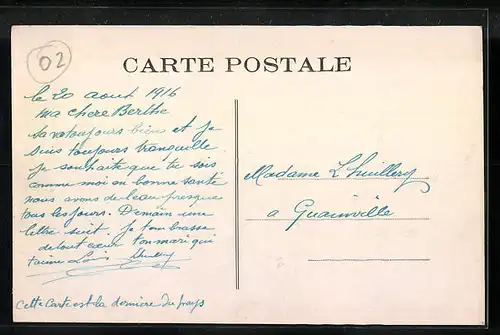 02
CARTE POSTALE
le 20 aout 1916
ma chere Berthe
sa va toujours bien et je
suis toujours tranquille
je souhaite que tu sois
comme moi en bonne santé
nous avons de l'eau presque
tous les jours. Demain une
lettre suit. je t'embrasse
de tout cœur ton mari qui
t'aime Louis Lhuillery
Cette Carte est la derniere du pays
Madame Lhuillery
a Guainville